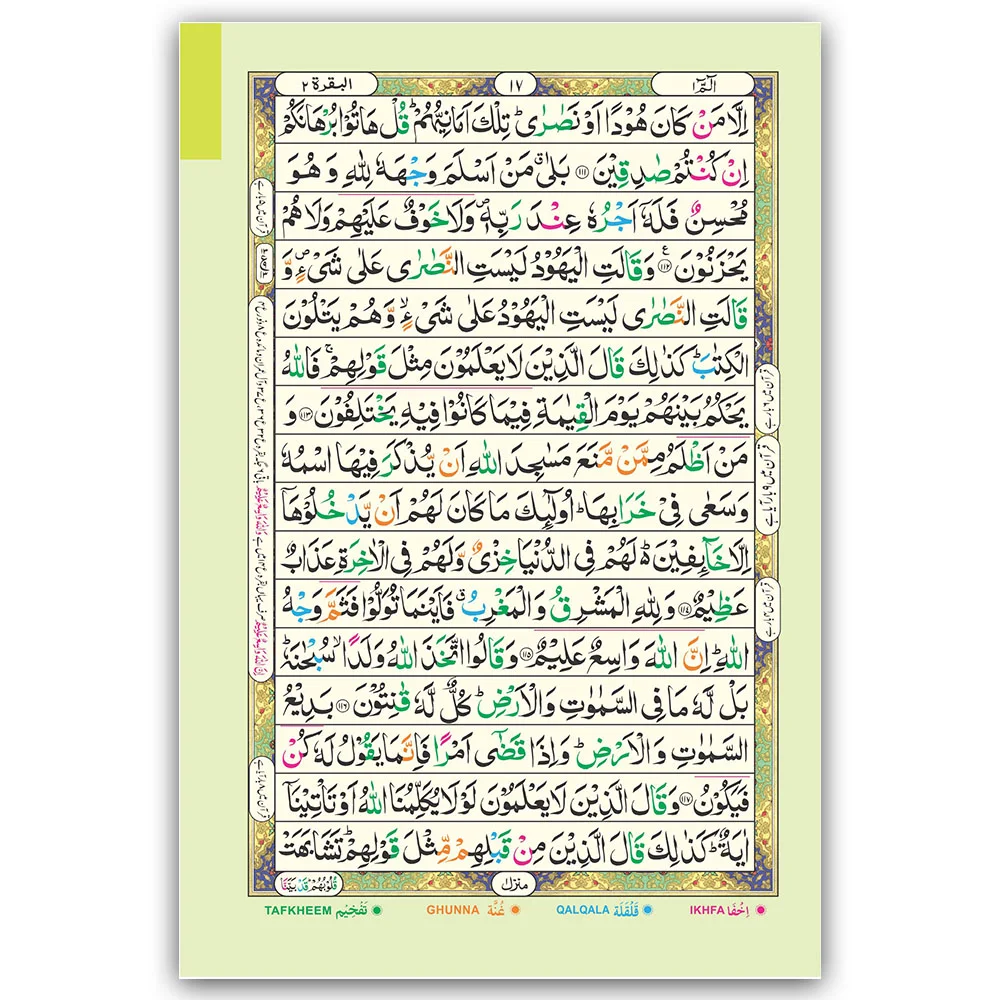 الٓمّٓ ١
١٧
البقرة ٢
اِلَّا مَنْ كَانَ هُوْدًا اَوْ نَصٰرٰى ؕ تِلْكَ اَمَانِيُّهُمْ ؕ قُلْ هَاتُوْا بُرْهَانَكُمْ
اِنْ كُنْتُمْ صٰدِقِيْنَ ﴿۱۱۱﴾ بَلٰى ۗ مَنْ اَسْلَمَ وَجْهَهٗ لِلّٰهِ وَ هُوَ
مُحْسِنٌ فَلَهٗۤ اَجْرُهٗ عِنْدَ رَبِّهٖ ۪ وَلَا خَوْفٌ عَلَيْهِمْ وَلَا هُمْ
يَحْزَنُوْنَ ﴿۱۱۲﴾ وَقَالَتِ الْيَهُوْدُ لَيْسَتِ النَّصٰرٰى عَلٰى شَىْءٍ ۪ وَّ
قَالَتِ النَّصٰرٰى لَيْسَتِ الْيَهُوْدُ عَلٰى شَىْءٍ ۙ وَّهُمْ يَتْلُوْنَ
الْكِتٰبَ ؕ كَذٰلِكَ قَالَ الَّذِيْنَ لَا يَعْلَمُوْنَ مِثْلَ قَوْلِهِمْ ۚ فَاللّٰهُ
يَحْكُمُ بَيْنَهُمْ يَوْمَ الْقِيٰمَةِ فِيْمَا كَانُوْا فِيْهِ يَخْتَلِفُوْنَ ﴿۱۱۳﴾ وَ
مَنْ اَظْلَمُ مِمَّنْ مَّنَعَ مَسٰجِدَ اللّٰهِ اَنْ يُّذْكَرَ فِيْهَا اسْمُهٗ
وَسَعٰى فِىْ خَرَابِهَا ؕ اُولٰٓئِكَ مَا كَانَ لَهُمْ اَنْ يَّدْخُلُوْهَاۤ
اِلَّا خَآئِفِيْنَ ؕ لَهُمْ فِى الدُّنْيَا خِزْىٌ وَّلَهُمْ فِى الْاٰخِرَةِ عَذَابٌ
عَظِيْمٌ ﴿۱۱۴﴾ وَلِلّٰهِ الْمَشْرِقُ وَالْمَغْرِبُ ۗ فَاَيْنَمَا تُوَلُّوْا فَثَمَّ وَجْهُ
اللّٰهِ ؕ اِنَّ اللّٰهَ وَاسِعٌ عَلِيْمٌ ﴿۱۱۵﴾ وَقَالُوا اتَّخَذَ اللّٰهُ وَلَدًا ۙ سُبْحٰنَهٗ ؕ
بَلْ لَّهٗ مَا فِى السَّمٰوٰتِ وَالْاَرْضِ ؕ كُلٌّ لَّهٗ قٰنِتُوْنَ ﴿۱۱۶﴾ بَدِيْعُ
السَّمٰوٰتِ وَالْاَرْضِ ؕ وَاِذَا قَضٰٓى اَمْرًا فَاِنَّمَا يَقُوْلُ لَهٗ كُنْ
فَيَكُوْنُ ﴿۱۱۷﴾ وَقَالَ الَّذِيْنَ لَا يَعْلَمُوْنَ لَوْلَا يُكَلِّمُنَا اللّٰهُ اَوْ تَاْتِيْنَاۤ
اٰيَةٌ ؕ كَذٰلِكَ قَالَ الَّذِيْنَ مِنْ قَبْلِهِمْ مِّثْلَ قَوْلِهِمْ ؕ تَشَابَهَتْ
منزل ١
قُلُوْبُهُمْ قَدْ بَيَّنَّا
IKHFA اِخْفَا QALQALA قَلْقَلَة GHUNNA غُنَّة TAFKHEEM تَفْخِيْم